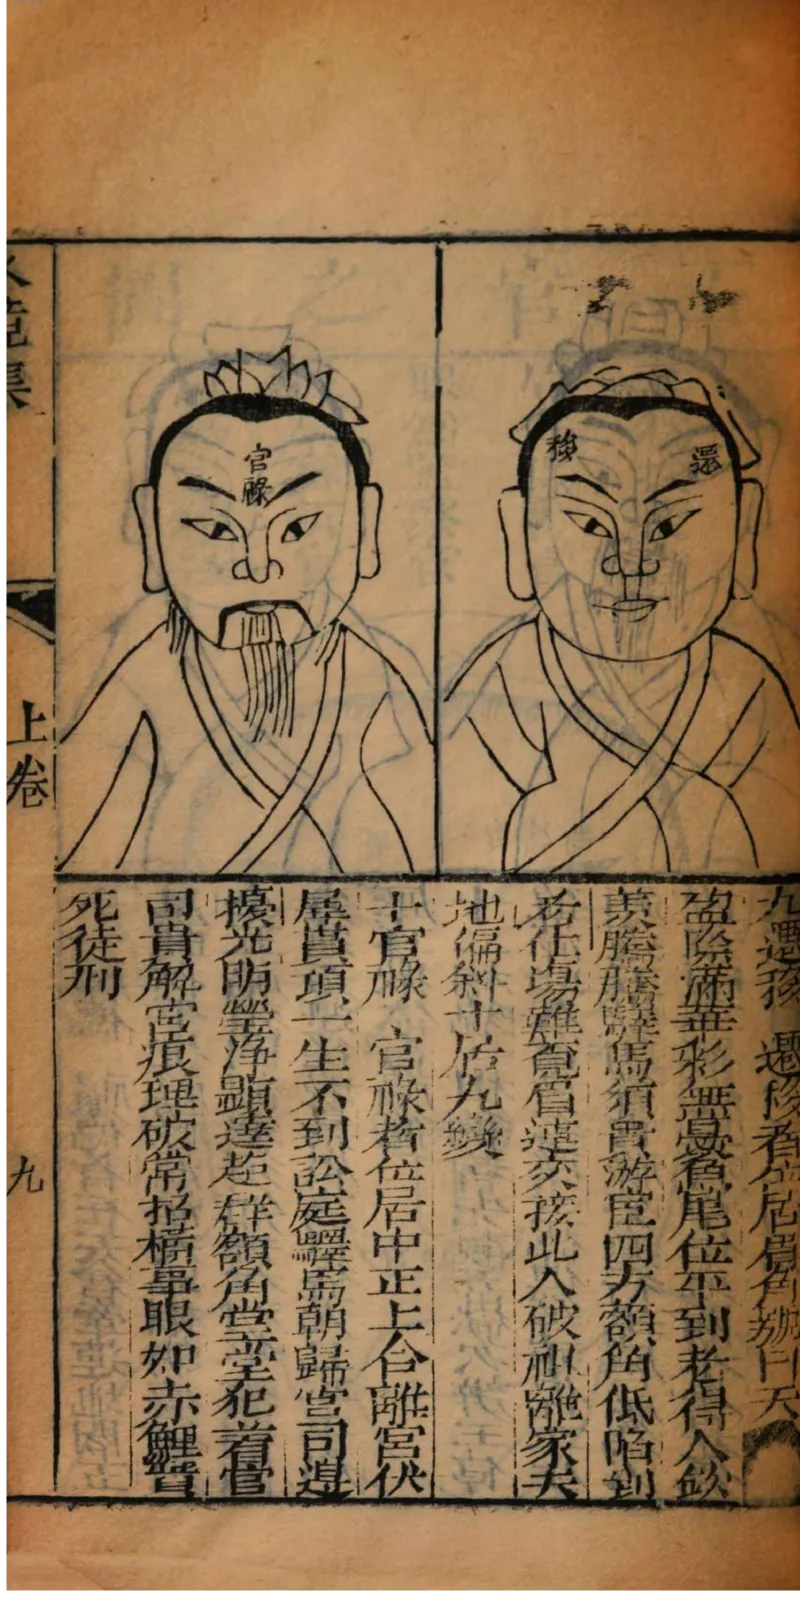 水鏡集
上卷
九
遷
移
官祿
九遷移 遷移者位居眉角號曰天
盈隂滿華彩無憂魚尾位平到老得人欽
羡騰騰驛馬須貴游宦四方額角低陷到
老住場難覓眉連交接此人破祖離家天
地偏斜十居九變
十官祿 官祿者位居中正上合離宮伏
犀貫頂一生不到訟庭驛馬朝歸官司退
擾光明瑩净顯達超群額角堂堂犯着官
司貴解宮痕理破常招橫事眼如赤鯉實
死徒刑